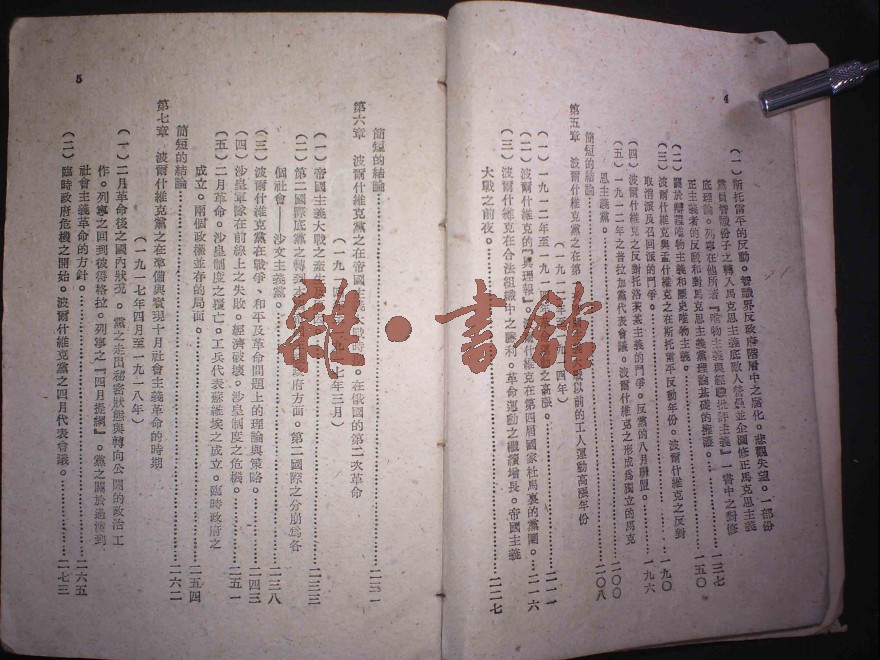 4
(一)斯托雷平的反動。智識界反政府階層中之腐化。悲觀失望。一部份
黨員智識份子之轉入馬克思主義底敵人營壘並企圖修正馬克思主義
底理論。列寧在他所著『唯物主義與經驗批評主義』一書中之對修
正主義者的反駁和對馬克思主義黨理論基礎的擁護。……一三七
(二)關於辯證唯物主義和歷史唯物主義。……一五〇
(三)波爾什維克與孟什維克之在斯托雷平反動年份。波爾什維克之反對
取消派及召回派的鬥爭。……一九〇
(四)波爾什維克之反對托洛茨基主義的鬥爭。反黨的八月聯盟。……一九六
(五)一九一二年之普拉加黨代表會議。波爾什維克之形成為獨立的馬克
思主義黨。……二〇〇
簡短的結論……二〇八
第五章 波爾什維克黨之在第 大戰以前的工人運動高漲年份
(一九一二 四年)
(一)一九一二年至一九一 之高漲。……二一一
(二)波爾什維克的『真理報』。 爾什維克在第四屆國家杜馬裏的黨團。……二一六
(三)波爾什維克黨在合法組織中之勝利。革命運動之繼續增長。帝國主義
大戰之前夜。……二二七
簡短的結論……二三一
第六章 波爾什維克黨之在帝國主義 戰時 。在俄國的第二次革命
(一九一 九一七年三月)
(一)帝國主義大戰之產生 ……二三三
(二)第二國際底黨之轉到 府方面。第二國際之分崩為各
個社會——沙文主義黨。……二三八
(三)波爾什維克黨在戰爭、和平及革命問題上的理論與策略。……二四三
(四)沙皇軍隊在前線上之失敗。經濟破壞。沙皇制度之危機。……二五一
(五)二月革命。沙皇制度之覆亡。工兵代表蘇維埃之成立。臨時政府之
成立。兩個政權並存的局面。……二五四
簡短的結論……二六二
第七章 波爾什維克黨之在準備與實現十月社會主義革命的時期
(一九一七年四月至一九一八年)
(一)二月革命後之國內狀況。黨之走出秘密狀態與轉向公開的政治工
作。列寧之回到彼得格拉。列寧之『四月提綱』。黨之關於過渡到
社會主義革命的方針。……二六五
(二)臨時政府危機之開始。波爾什維克黨之四月代表會議。……二七三
5
雜·書館